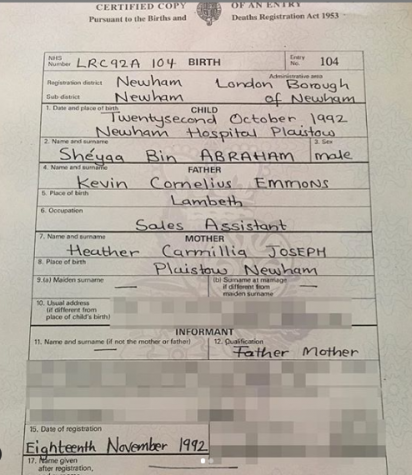 CERTIFIED COPY OF AN ENTRY
Pursuant to the Births and Deaths Registration Act 1953
NHS Number LRC92A 104 BIRTH Entry No. 104
Registration district Newham Administrative area London Borough
Sub district Newham of Newham
1. Date and place of birth CHILD
Twentysecond October 1992
Newham Hospital Plaistow
2. Name and surname 3. Sex
Shéyaa Bin ABRAHAM male
4. Name and surname FATHER
Kevin Cornelius EMMONS
5. Place of birth Lambeth
6. Occupation
Sales Assistant
7. Name and surname MOTHER
Heather Carmillia JOSEPH
8. Place of birth Plaistow Newham
9.(a) Maiden surname — (b) Surname at marriage if different from maiden surname —
10. Usual address (if different from place of child's birth)
INFORMANT
11. Name and surname (if not the mother or father) — 12. Qualification
Father Mother
15. Date of registration
Eighteenth November 1992
17. Name given after registration,